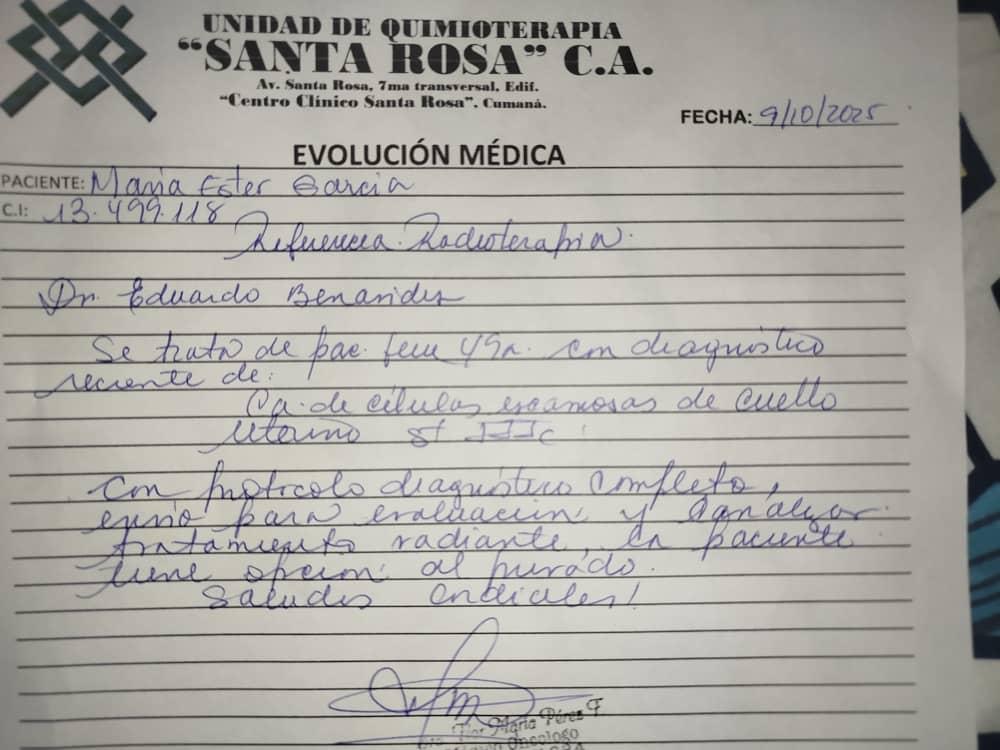 UNIDAD DE QUIMIOTERAPIA
“SANTA ROSA” C.A.
Av. Santa Rosa, 7ma transversal, Edif.
“Centro Clínico Santa Rosa”, Cumaná.
FECHA: 9/10/2025
EVOLUCIÓN MÉDICA
PACIENTE: Maria Ester Garcia
C.I: 13.499.118
Referencia Radioterapia.
Dr. Eduardo Benavides
Se trata de pac. fem 49a. con diagnóstico
reciente de:
Ca. de células escamosas de cuello
uterino st IIIc
Con protocolo diagnóstico completo,
envio para evaluación y
tratamiento radiante, la paciente
tiene opción al privado.
Saludos cordiales!
Dra. Flor María Pérez F.
Oncologo